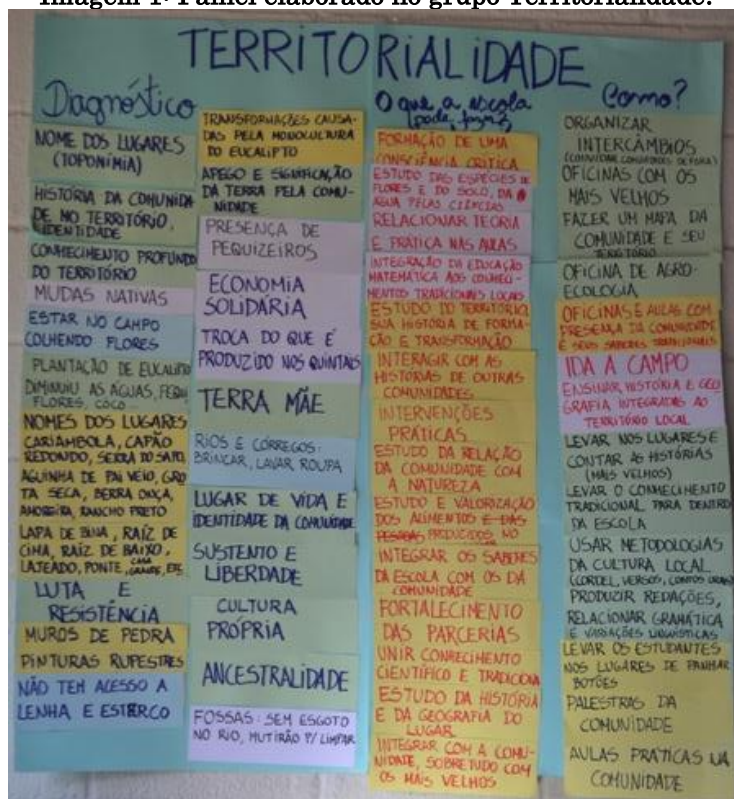 Imagem 1: Painel elaborado no grupo Territorialidade.
TERRITORIALIDADE
Diagnóstico
NOME DOS LUGARES
(TOPONÍMIA)
HISTÓRIA DA COMUNIDA-
DE NO TERRITÓRIO,
IDENTIDADE
CONHECIMENTO PROFUNDO
DO TERRITÓRIO
MUDAS NATIVAS
ESTAR NO CAMPO
COLHENDO FLORES
PLANTAÇÃO DE EUCALIPTO
DIMINUIU AS ÁGUAS, PEQUI
FLORES, COCO...
NOMES DOS LUGARES
CARIAMBOLA, CAPÃO
REDONDO, SERRA DO SAPO,
AGUINHA DE PAI VEIO, GRO
TA SECA, BERRA ONÇA,
AMOREIRA, RANCHO PRETO
LAPA DE BINA, RAÍZ DE
CIMA, RAÍZ DE BAIXO,
LAJEADO, PONTE, CASA GRANDE, ETC.
LUTA E
RESISTÊNCIA
MUROS DE PEDRA
PINTURAS RUPESTRES
NÃO TEM ACESSO A
LENHA E ESTERCO
TRANSFORMAÇÕES CAUSA-
DAS PELA MONOCULTURA
DO EUCALIPTO
APEGO E SIGNIFICAÇÃO
DA TERRA PELA COMU-
NIDADE
PRESENÇA DE
PEQUIZEIROS
ECONOMIA
SOLIDÁRIA
TROCA DO QUE É
PRODUZIDO NOS QUINTAIS
TERRA MÃE
RIOS E CÓRREGOS:
BRINCAR, LAVAR ROUPA
LUGAR DE VIDA E
IDENTIDADE DA COMUNIDADE
SUSTENTO E
LIBERDADE
CULTURA
PRÓPRIA
ANCESTRALIDADE
FOSSAS: SEM ESGOTO
NO RIO, MUTIRÃO P/ LIMPAR
O que a escola
(pode fazer)
FORMAÇÃO DE UMA
CONSCIÊNCIA CRÍTICA
ESTUDO DAS ESPÉCIES DE
FLORES E DO SOLO, DA
ÁGUA PELAS CIÊNCIAS
RELACIONAR TEORIA
E PRÁTICA NAS AULAS
INTEGRAÇÃO DA EDUCAÇÃO
MATEMÁTICA AOS CONHECI-
MENTOS TRADICIONAIS LOCAIS
ESTUDO DO TERRITÓRIO,
SUA HISTÓRIA DE FORMA-
ÇÃO E TRANSFORMAÇÃO
INTERAGIR COM AS
HISTÓRIAS DE OUTRAS
COMUNIDADES
INTERVENÇÕES
PRÁTICAS
ESTUDO DA RELAÇÃO
DA COMUNIDADE COM
A NATUREZA
ESTUDO E VALORIZAÇÃO
DOS ALIMENTOS E DAS
PESSOAS PRODUZIDOS NO
INTEGRAR OS SABERES
DA ESCOLA COM OS DA
COMUNIDADE
FORTALECIMENTO
DAS PARCERIAS
UNIR CONHECIMENTO
CIENTÍFICO E TRADICIONA
ESTUDO DA HISTÓRIA
E DA GEOGRAFIA DO
LUGAR
INTEGRAR COM A COMU-
NIDADE, SOBRETUDO COM
OS MAIS VELHOS
Como?
ORGANIZAR
INTERCÂMBIOS
OFICINAS COM OS
MAIS VELHOS
FAZER UM MAPA DA
COMUNIDADE E SEU
TERRITÓRIO
OFICINA DE AGRO-
ECOLOGIA
OFICINAS E AULAS COM
PRESENÇA DA COMUNIDADE
E SEUS SABERES TRADICIONAIS
IDA A CAMPO
ENSINAR HISTÓRIA E GEO
GRAFIA INTEGRADAS AO
TERRITÓRIO LOCAL
LEVAR NOS LUGARES E
CONTAR AS HISTÓRIAS
(MAIS VELHOS)
LEVAR O CONHECIMENTO
TRADICIONAL PARA DENTRO
DA ESCOLA
USAR METODOLOGIAS
DA CULTURA LOCAL
(CORDEL, VERSOS, CONTOS
PRODUZIR REDAÇÕES,
RELACIONAR GRAMÁTICA
E VARIAÇÕES LINGUÍSTICAS
LEVAR OS ESTUDANTES
NOS LUGARES DE PANHAR
BOTÕES
PALESTRAS DA
COMUNIDADE
AULAS PRÁTICAS NA
COMUNIDADE